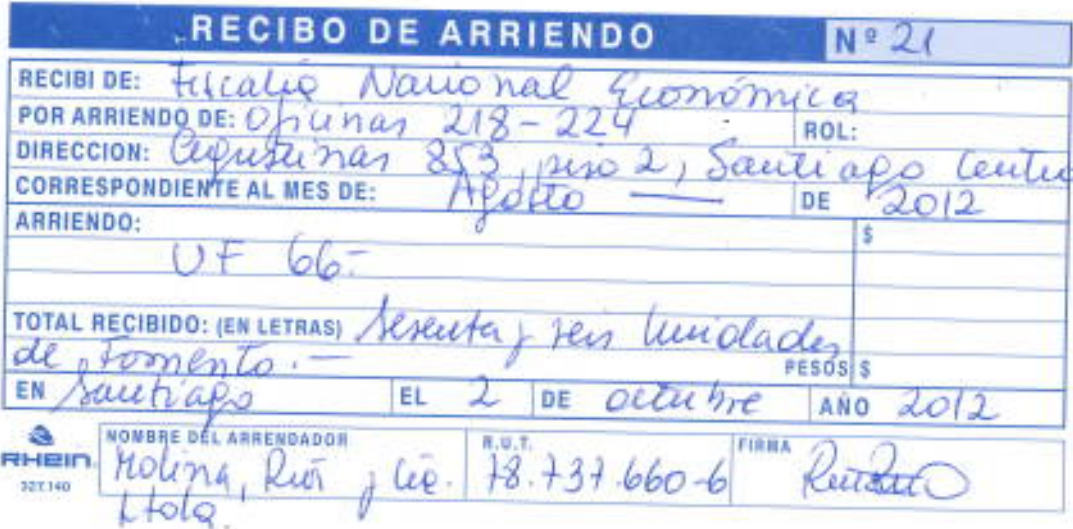 RECIBO DE ARRIENDO Nº 21
RECIBI DE: Fiscalía Nacional Económica
POR ARRIENDO DE: Oficinas 218-224 ROL:
DIRECCION: Agustinas 853, piso 2, Santiago Centro
CORRESPONDIENTE AL MES DE: Agosto — DE 2012
ARRIENDO: $
UF 66.-
TOTAL RECIBIDO: (EN LETRAS) Sesenta y seis Unidades
de Fomento.— PESOS $
EN Santiago EL 2 DE octubre AÑO 2012
NOMBRE DEL ARRENDADOR R.U.T. FIRMA
RHEIN Molina, y Cía. 78.737.660-6
327.140
Ltda.